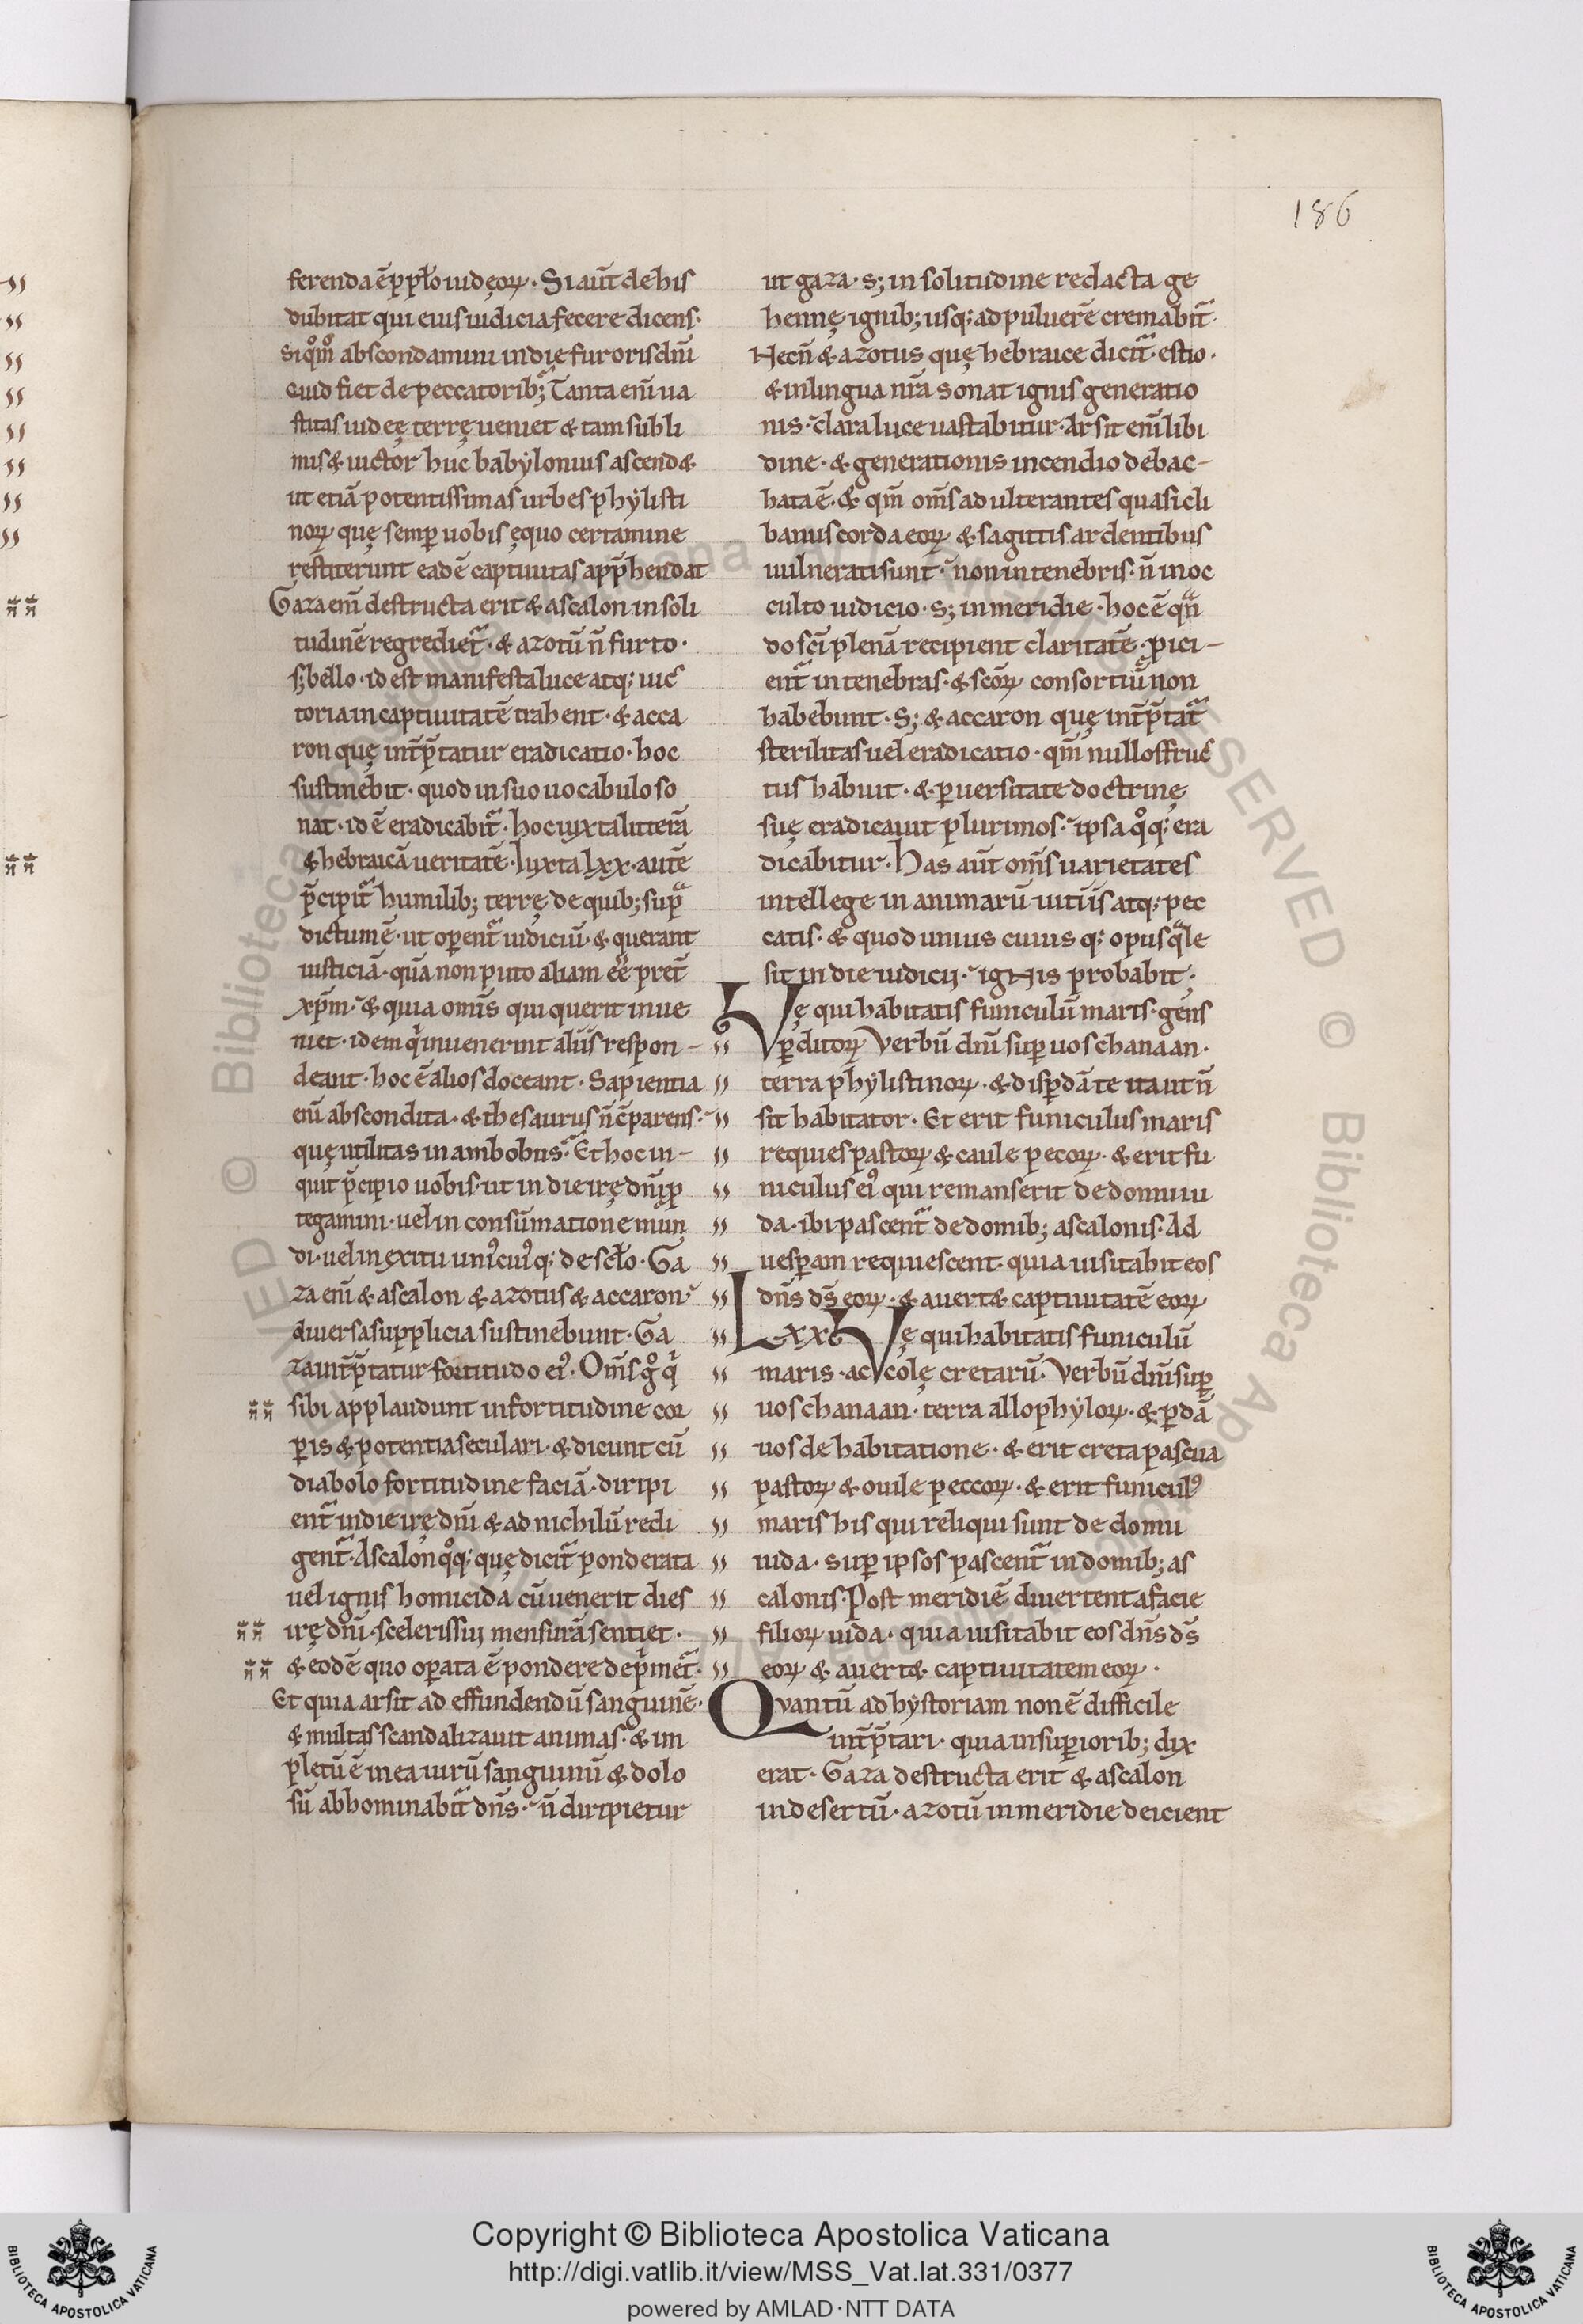 186
ferenda ē p̱ pp̱ło iudęoꝝ · Si aut̄ de his
dubitat qui eius iudicia fecere dicens ·
si qͦm̄ abscondamini in die furoris dn̄i
quid fiet de peccatorib; Tanta eni̅ ua
stitas iudeę terrę ueniet & tam subli
mis & uictor huc babẏlonius ascend&
ut etiā potentissimas urbes phẏlisti
noꝝ quę semꝑ uobis ęquo certamine
restiterunt eadē captiuitas app̄hendat
Gaza eni̅ destructa erit & ascalon in soli
tudinē regrediet᷑ · & azotū n̄ furto ·
s; bello · id est manifesta luce atq; uic
toria in captiuitatē trahent · & acca
ron quę int̄p̄tatur eradicatio · hoc
sustinebit · quod in suo uocabulo so
nat · id ē eradicabit᷑ · hoc iuxta litterā
& hebraicā ueritatē · Iuxta lxx · autē
p̄cipit᷑ humilib; terrę de quib; supᷓ
dictum ē · ut oꝑent᷑ iudiciū · & querant
iusticiā · quā non puto aliam ee̅ p̄ret̄
xp̄m · & quia omīs qui querit inue
niet · idem qͥ inuenerint aliis respon-
deant · hoc ē alios doceant · Sapientia
eni̅ abscondita · & thesaurus n̄ cp̄arens ·
quę utilitas in ambobus · Et hoc in-
quit p̄cipio uobis · ut in die irę dn̄i ꝓ
tegamini · uel in consūmatione mun
di · uel in exitu uniꝰcuiꝰq; de scło · Ga
za eni̅ & ascalon & azotus & accaron
diuersa supplicia sustinebunt · Ga
za int̄p̄tatur fortitudo eiꝰ · Om̄s gͦ qͥ
sibi applaudunt in fortitudine cor
ꝑis & potentia seculari & dicunt cū
diabolo fortitudine faciā · diripi
ent᷑ in die irę dn̄i & ad nichilū redi
gent᷑ · Ascalon qͦq; quę dicit᷑ ponderata
uel ignis homicida cū uenerit dies
irę dn̄i · sceleris sui mensurā sentiet ·
& eodē quo oꝑata ē pondere depͥmet᷑ ·
Et quia arsit ad effundendū sanguinē ·
& multas scandalizauit animas · & im
pletū ē in ea uirū sanguinū & dolo
sū abhominabit᷑ dn̄s · n̄ diripietur
ut gaza · s; in solitudine redacta ge
hennę ignib; usq; ad puluerē cremabit᷑ ·
Nec n̄ & azotus quę hebraice dicit᷑ · estio ·
& in lingua nr̄a sonat ignis generatio
nis · clara luce uastabitur · Arsit eni̅ libi
dine · & generationis incendio debac-
hata ē · & qm̄ om̄s adulterantes quasi cli
banus corda eoꝝ & sagittis ardentibus
uulnerati sunt · non in tenebris · n̄ in oc
culto iudicio · s; in meridie · hoc ē qᷓn
do sc̄i plenā recipient claritatē · ꝓici-
ent᷑ in tenebras · & sc̄oꝝ consortiū non
habebunt · S; & accaron quę int̄p̄tat᷑
sterilitas uel eradicatio · qm̄ nullos fruc
tus habuit · & ꝑuersitate doctrinę
suę eradicauit plurimos · ipsa qͦq; era
dicabitur · Has aut̄ om̄s uarietates
intellege in animarū uitiis atq; pec
catis · & quod unius cuius q; opus qᷓle
sit in die iudicij · igNis probabit ·
Vę qui habitatis funiculū maris · gens
ꝑditoꝝ Verbū dn̄i suꝑ uos chanaan ·
terra phẏlistinoꝝ · & disꝑdā te ita ut n̄
sit habitator · Et erit funiculus maris
requies pastoꝝ & caule pecoꝝ · & erit fu
niculus eiꝰ qui remanserit de domu iu
da · ibi pascent᷑ de domib; ascalonis · Ad
uesꝑam requiescent · quia uisitabit eos
dn̄s ds̄ eoꝝ · & auert& captiuitatē eoꝝ
LXX Vę qui habitatis funiculū
maris · accolę cretarū · Verbū dn̄i suꝑ
uos chanaan · terra allophẏloꝝ · & ꝑdā
uos de habitatione · & erit creta pascua
pastoꝝ & ouile peccoꝝ · & erit funiculꝰ
maris his qui reliqui sunt de domu
iuda · suꝑ ipsos pascent᷑ in domib; as
calonis · Post meridiē diuertent a facie
filioꝝ iuda · quia uisitabit eos dn̄s ds̄
eoꝝ & auert& captiuitatem eoꝝ ·
Qvantū ad hystoriam non ē difficile
int̄p̄tari · quia in suꝑiorib; dix
erat · Gaza destructa erit & ascalon
in desertū · azotū in meridie deicient
Copyright © Biblioteca Apostolica Vaticana
http://digi.vatlib.it/view/MSS_Vat.lat.331/0377
powered by AMLAD·NTT DATA
BIBLIOTECA APOSTOLICA VATICANA
BIBLIOTECA APOSTOLICA VATICANA